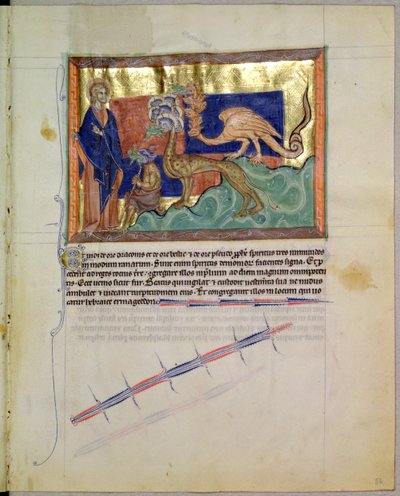 Et vidi de ore draconis et de ore bestie & de ore pseudo prophe spiritus tres inmundos
in modum ranarum. Sunt enim spiritus demonior facientes signa. Et p
cedent ad reges tocius terre cgregare illos in plium ad diem magnum omnipoten
tis. Ecce uenio sicut fur. Beatus qui uigilat & custodit uestimenta sua ne nudus
ambulet & uideant turpitudinem eius. Et congregabit illos in locum qui uo
catur hebraice ermagedon